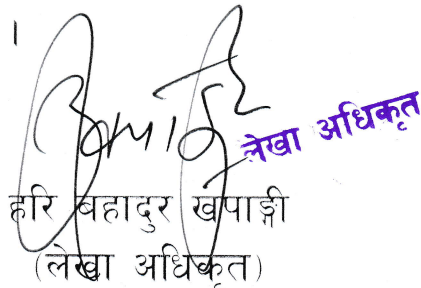 ।
लेखा अधिकृत
हरि बहादुर खपाङ्गी
(लेखा अधिकृत)